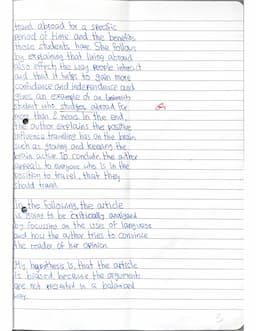 travel abroad for a specific
period of time and the benefits
those students have. She follows
by explaining that living abroad
also effects the way people interact
and that it helps to gain more
confidence and independence and
gives an example of an
student who studies abroad for
more than 2 years. In the end,
the author explains the positive
influence traveling has on the brain
such as growing and keeping the
brain active. To conclude the author
appeals to everyone who is in the
position to travel, that they
should travel.
In the following the article
is going to be critically analysed
by focussing on the uses of language
and how the author tries to convince
the reader of her opinion.
My hypothesis is, that the article
is biased because the arguments
are not presented in a balanced
way.